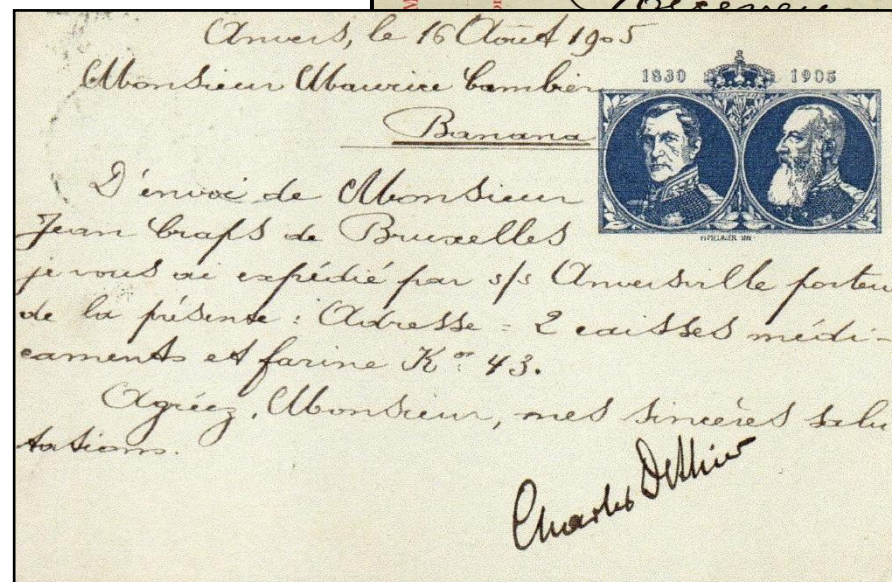 Anvers, le 16 Août 1905
Monsieur Maurice Cambier
Banana
1830 1905
D'envoi de Monsieur
Jean Craps de Bruxelles
je vous ai expédié par s/s Anversville porteur
de la présente : Adresse = 2 caisses médi-
caments et farine Kos 43.
Agréez, Monsieur, mes sincères salu
tations.
Charles